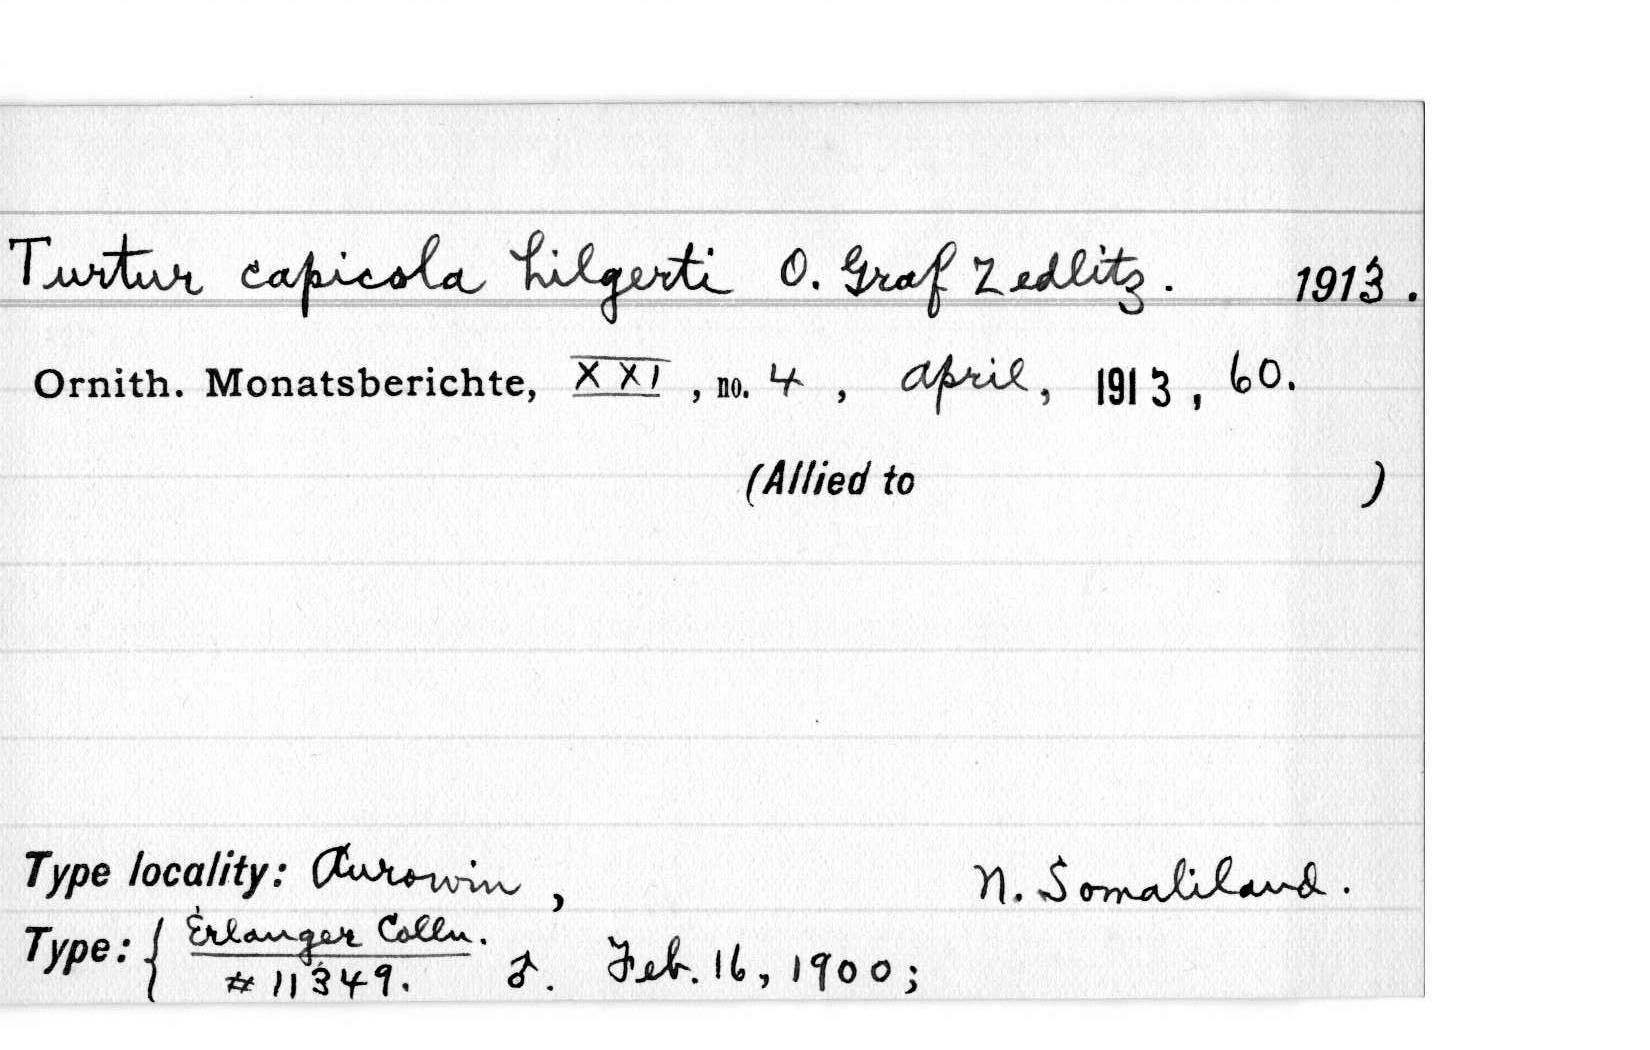 Turtur capicola hilgerti O. Graf Zedlitz. 1913.
Ornith. Monatsberichte, XXI, no. 4, April, 1913, 60.
(Allied to )
Type locality: Aurowin, N. Somaliland.
Type: { Erlanger Colln. # 11349. ♂. Feb. 16, 1900;